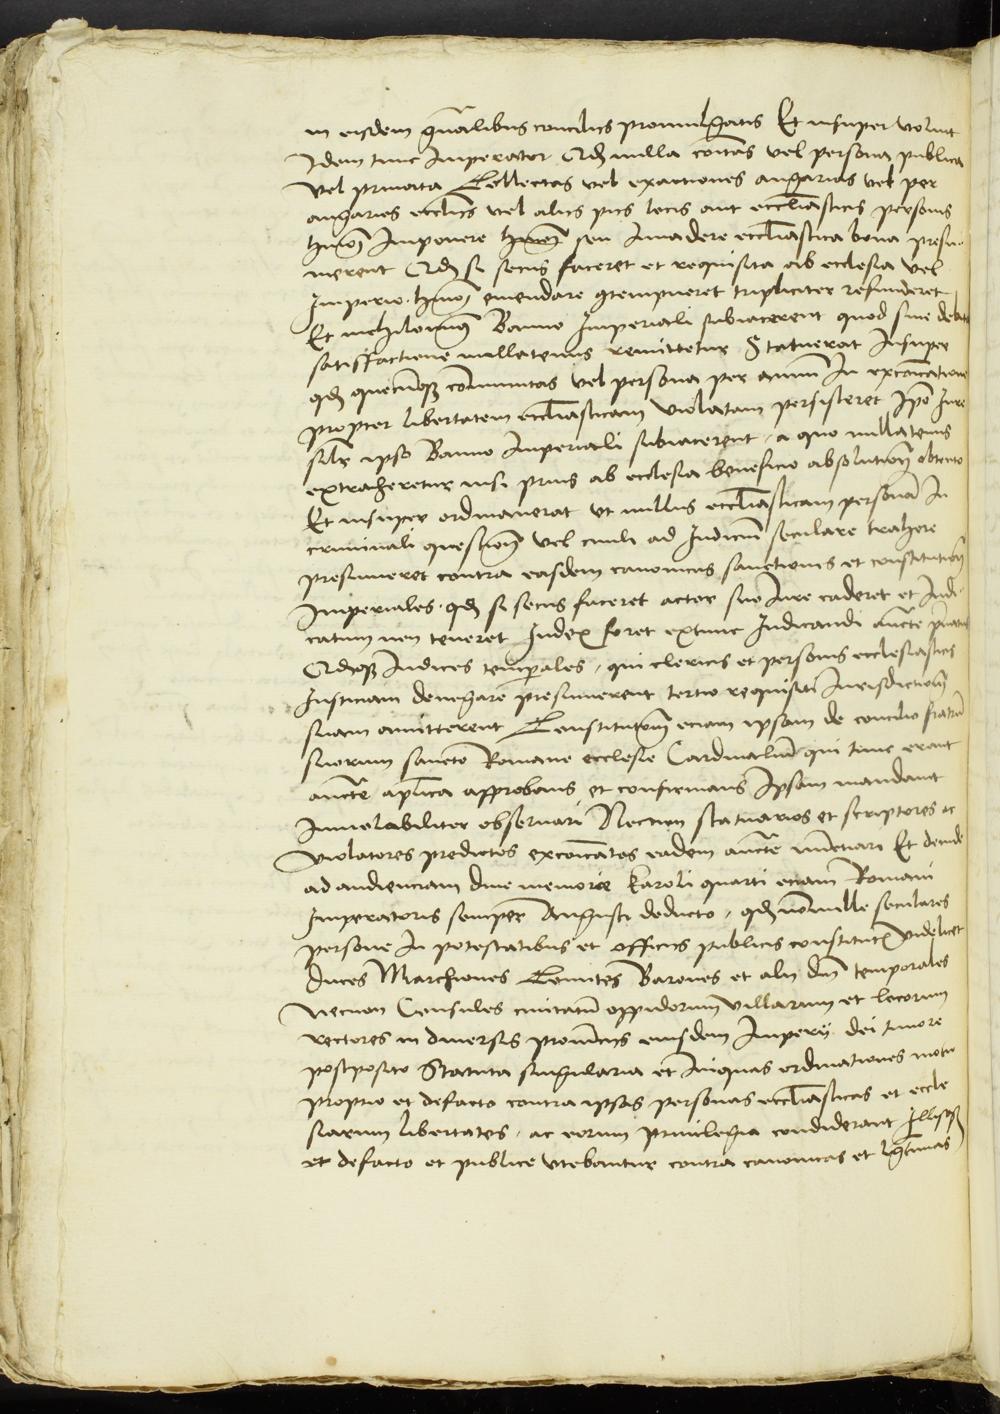 in eisdem gn̄alibus conciliis promulgatis Et insuper voluit
Idem tunc Imperator Qd nulla cōitas vel persona publica
vel priuata Collectas vel exactiones angarias vel per
angarias eccliis vel aliis piis locis aut eccl̄iasticis personis
hmōi Imponere hmōi seu Inuadere eccl̄iastica bona presu-
merent Qd si secus faceret et requisita ab ecclesia vel
Imperio hmōi emendare ɔtempneret tripliciter refunderet
Et nichilominꝰ Banno Imperiali subiacerent quod sine debita
satisffactione nullatenus remittetur Statuerat Insuper
qd quecūqꝫ communitas vel persona per annū In excōicatione
propter libertatem eccl̄iasticam violatam persisteret Ipō Iure
silr ipso Banno Imperiali subiacerent, a quo nullatenus
extraheretur nisi prius ab ecclesia beneficio absolutiōn obtento
Et insuper ordinauerat ut nullus eccl̄iasticam personā In
criminali questiōn vel ciuili ad Iudiciū seculare trahere
presumeret contra easdem canonicas sanctionis et constitutiōn
Imperiales. qd si secus faceret actor suo Iure caderet et Iudi-
catum non teneret Iudex foret extunc Iudicandi auctē priuatus
Qdqꝫ Iudices temporales, qui clericis et personis ecclesiasticis
Iusticiam denegare presumerent tertio requisiti Iurisdictiōn
suam amitterent Constitutiōn eciam ipsam de concilio fratrū
suorum sancte Romane ecclesie Cardinaliū qui tunc erant
auctē aplica approbans et confirmans Ipsam mandauit
Inuiolabiliter obseruari Necnon statuarios et scriptores ac
violatores predictos excōicatos eadem auctē nūctiari Et deinde
ad audienciam diue memorie Karoli quarti eciam Romani
Imperatoris semper Augusti deducto, qd nonnulle seculares
persone In potestatibus et officiis publicis constitute videlicet
Duces Marchiones Comites Barones et alij dn̄i temporales
Necnon Consules ciuitatū oppidorum villarum et locorum
rectores in diuersis prouinciis eiusdem Imperij dei timore
postposito Statuta singularia et Iniquas ordinationes motu
proprio et defacto contra ipsas personas eccl̄iasticas et eccle
siarum libertates, ac eorum priuilegia condiderant Illisqꝫ
et defacto et publice vtebantur contra canonicas et lgītimas